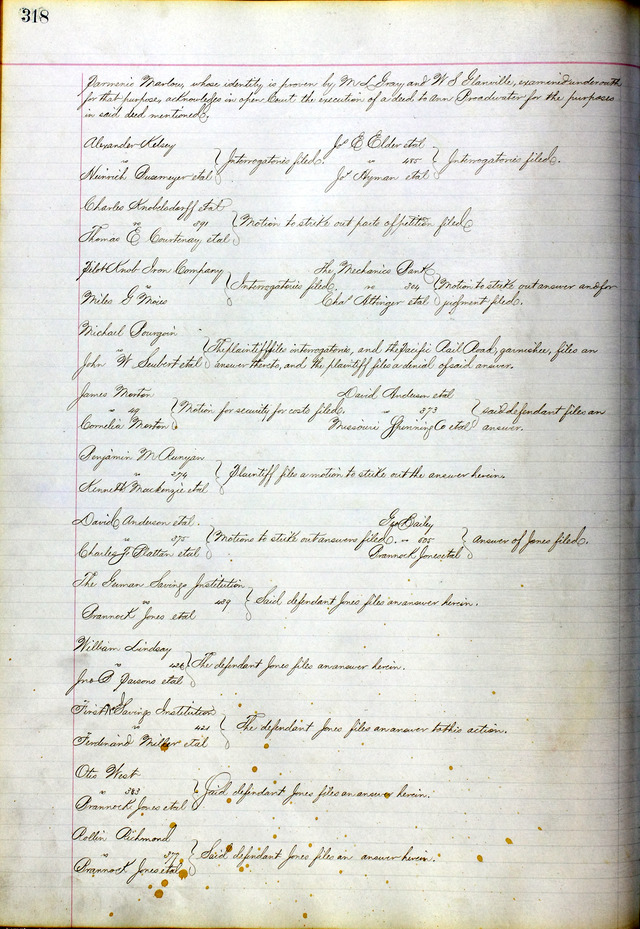 318
Parmenio Marlow, whose identity is proven by M L Gray and W S Glanville, examined under oath
for that purpose, acknowledges in open Court the execution of a deed to Ann Broadwater for the purposes
in said deed mentioned.
Alexander Kelsey
vs } Interrogatories filed.
Heinrich etal
Jos E Elder etal
vs 485 } Interrogatories filed.
Jos Hyman etal
Charles Knobelsdorff etal
vs 891 } Motion to strike out parts of petition filed
Thomas E Courtenay etal
Pilot Knob Iron Company
vs } Interrogatories filed.
Miles G
The Mechanics Bank
vs 324 } Motion to strike out answer and for
Chas Attinger etal judgment filed.
Michael Bourgoin
vs } The plaintiff files interrogatories, and the Pacific Rail Road, garnishee, files an
John W Seubert etal answer thereto, and the plaintiff files a denial of said answer.
James Morton
vs 49 } Motion for security for costs filed.
Cornelia Morton
David Anderson etal
vs 373 } said defendant files an
Missouri Spinning Co etal answer.
Benjamin M Runyan
vs 274 } Plaintiff files a motion to strike out the answer herein.
Kenneth Mackenzie etal
David Anderson etal.
vs 375 } Motions to strike out answers filed.
Charles J Platton etal
Geo Bailey
vs 605 } Answer of Jones filed.
Brannock Jones etal
The German Savings Institution
vs 439 } Said defendant Jones files an answer herein.
Brannock Jones etal
William Lindsay
vs 426 } The defendant Jones files an answer herein.
Jno D Parsons etal
First Savings Institution
vs 421 } The defendant Jones files an answer to this action.
Ferdinand Miller etal
Otis West
vs 383 } Said defendant Jones files an answer herein.
Brannock Jones etal
Rollin Richmond
vs 377 } Said defendant Jones files an answer herein.
Brannock Jones etal